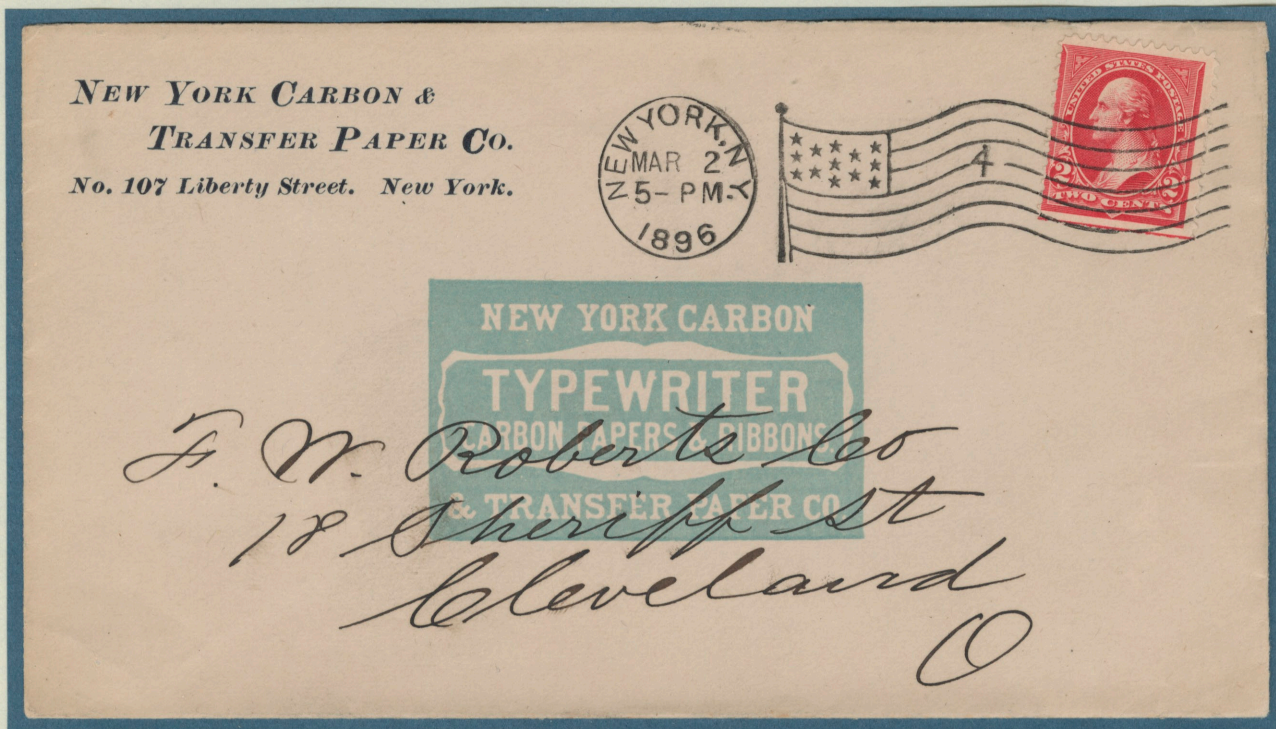 New York Carbon &
Transfer Paper Co.
No. 107 Liberty Street. New York.
NEW YORK, N.Y.
MAR 2
5- PM
1896
4
UNITED STATES POSTAGE
2 2
TWO CENTS
NEW YORK CARBON
TYPEWRITER
CARBON PAPERS & RIBBONS
& TRANSFER PAPER CO.
F. W. Roberts Co
18 Sheriff St
Cleveland
O